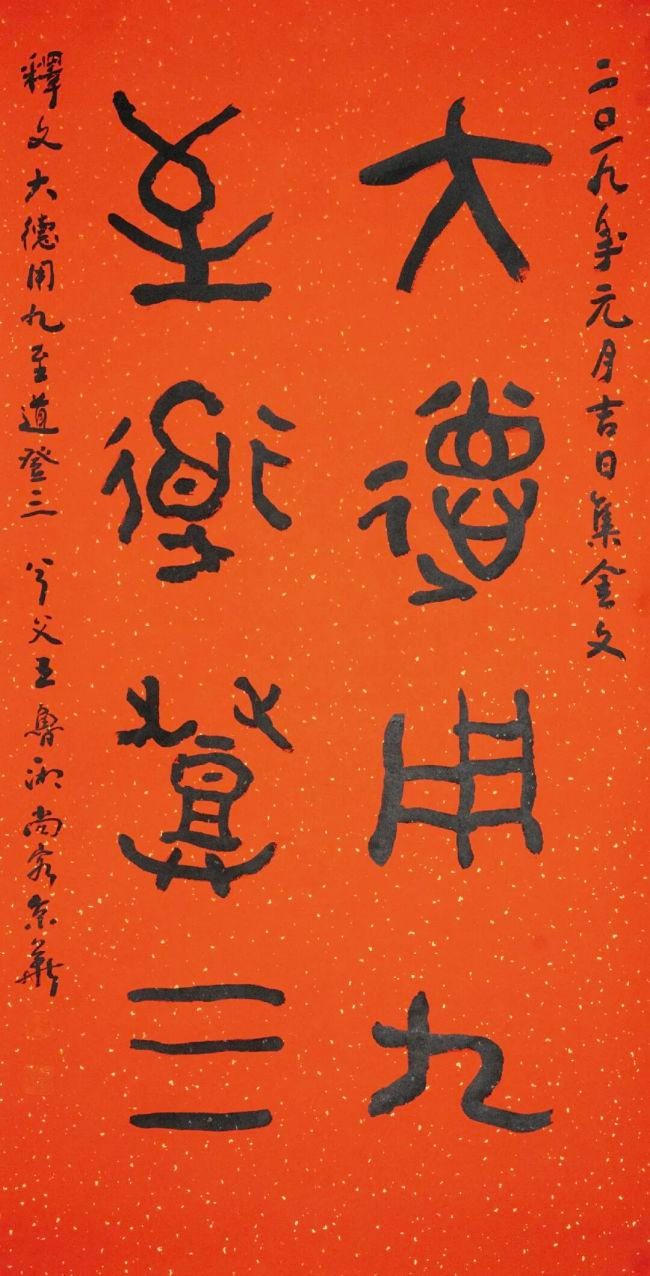 二〇一九年元月吉日集金文
大德用九
至道登三
釋文大德用九至道登三 兮父王魯湘尚客京華